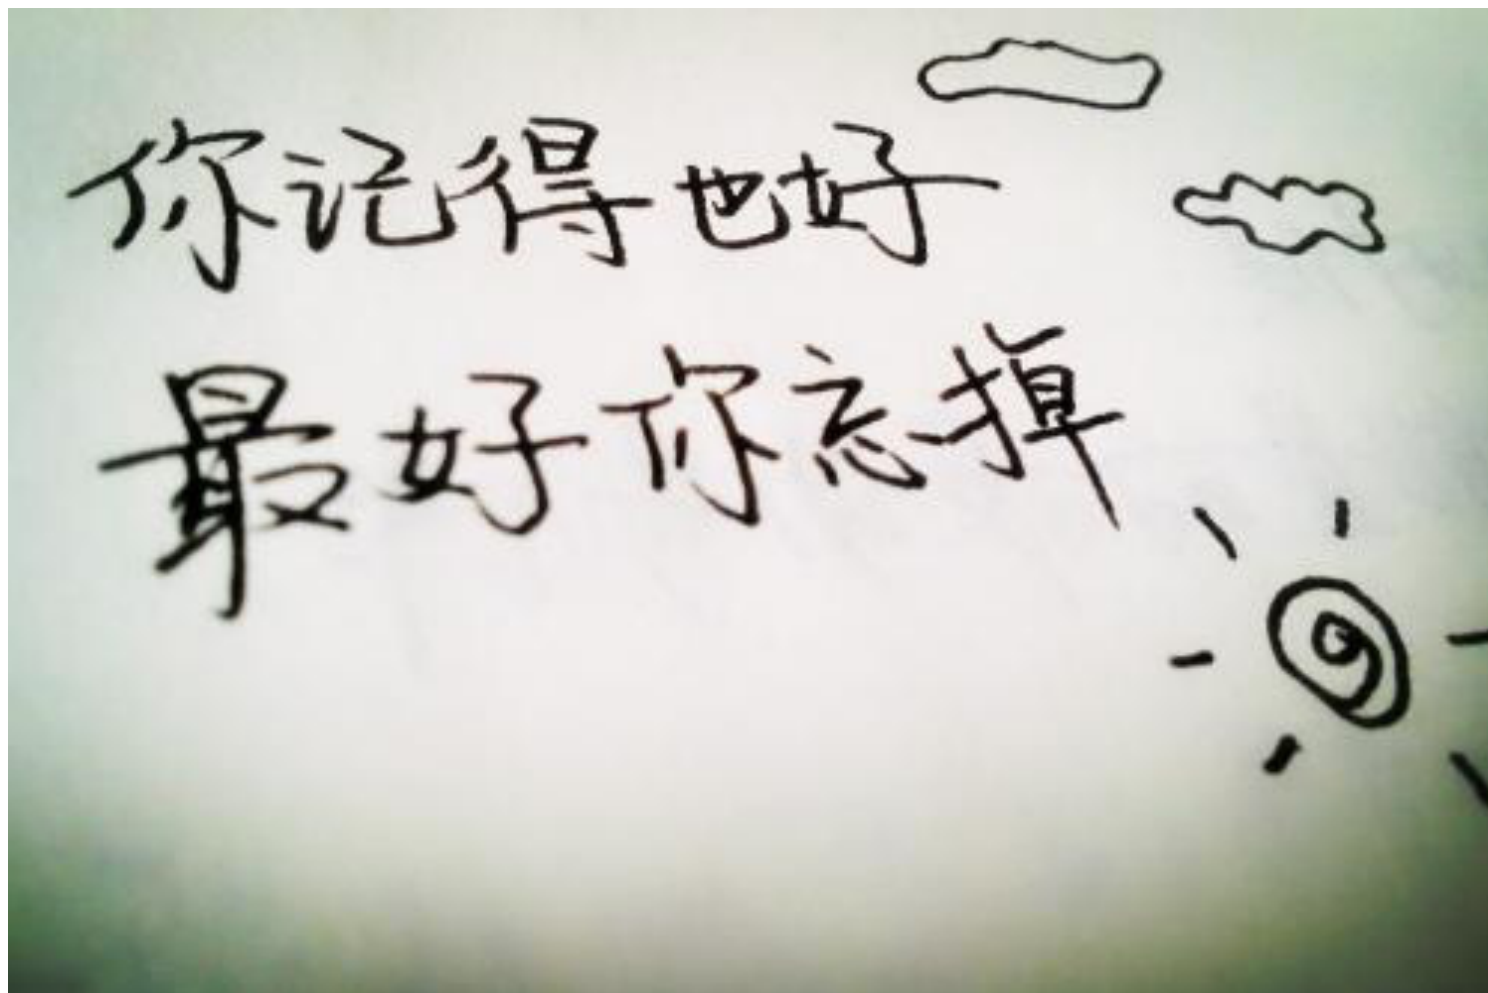 你记得也好
最好你忘掉